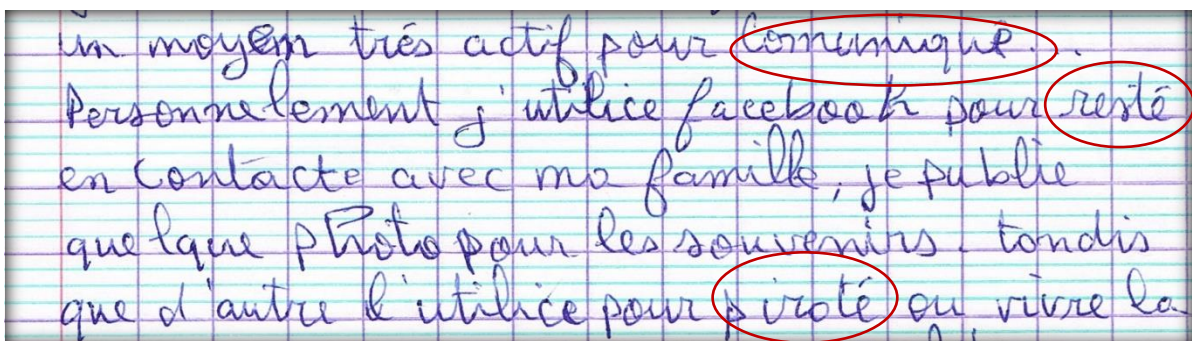 un moyen trés actif pour Comuniqué.
Personnelement j'utilice facebook pour resté
en contacte avec ma famille, je publie
quelque photo pour les souvenirs. tandis
que d'autre l'utilice pour piraté ou vivre la